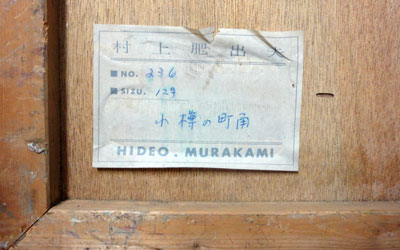 村上肥出夫
■ NO. 236
■ SIZU. 12号
小樽の町角
HIDEO. MURAKAMI